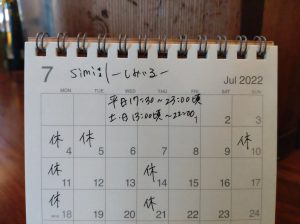 7 simi:(ーしみいるー Jul 2022
MON TUE WED THU FRI SAT SUN
平日17:30～23:00頃
土・日13:00頃～22:00
1 2 3
休 休 休
4 5 6 7 8 9 10
休 休
11 12 13 14 15 16 17
休 休
18 19 20 21 22 23 24